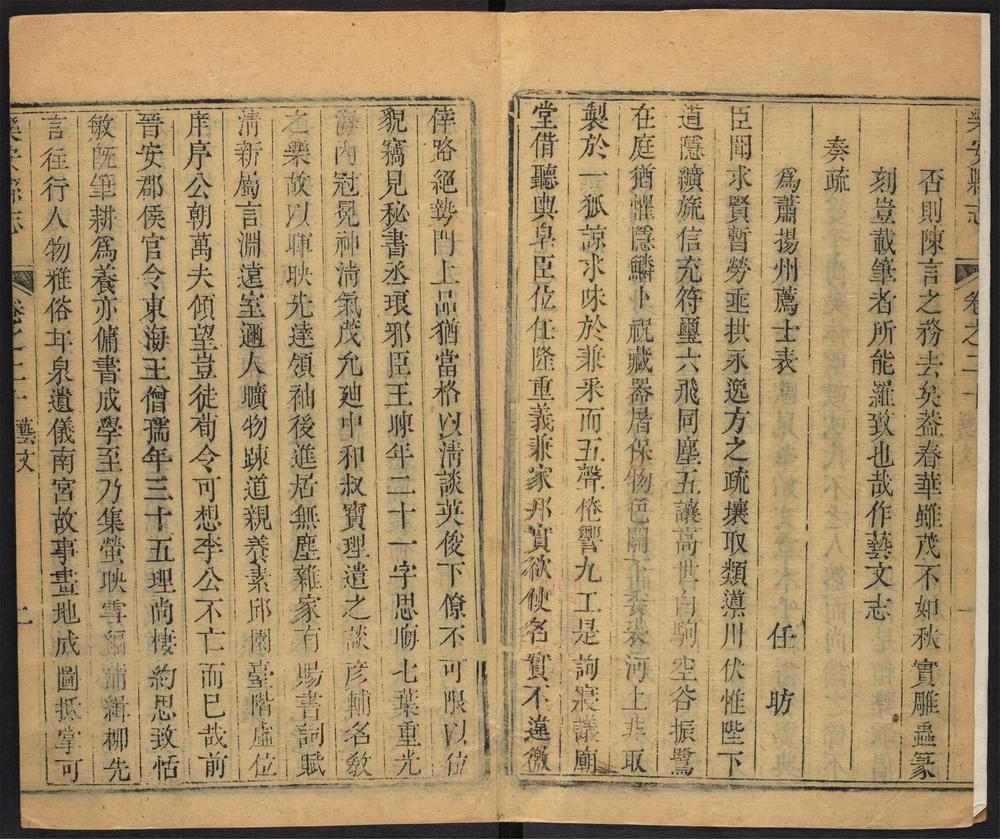 樂安縣志
卷之二十
否則陳言之務去矣葢春華雖茂不如秋實雕蟲篆
刻豈載筆者所能羅致也哉作藝文志
奏疏
為蕭揚州薦士表
任昉
臣聞求賢暫勞垂拱永逸方之疏壤取類導川伏惟陛下
道隱纊旒信充符璽六飛同塵五讓高世白駒空谷振鷺
在庭猶懼隱鱗卜祝藏器屠保物色關下委裘河上非取
製於一狐諒求味於兼采而五聲倦響九工是詢寢議廟
堂借聽輿皁臣位任隆重義兼家邦實欲使名實不違徼
倖路絕勢門上品猶當格以清談英俊下僚不可限以位
貌竊見秘書丞瑯邪臣王暕年二十一字思晦七葉重光
海內冠冕神清氣茂允廸中和叔寶理遣之談彥輔名教
之樂故以暉映先達領袖後進居無塵雜家有賜書詞賦
清新屬言淵遠室邇人曠物踈道親養素邱園臺階虛位
庠序公朝萬夫傾望豈徒荀令可想李公不亡而巳哉前
晉安郡侯官令東海王僧孺年三十五理尚棲約思致恬
敏旣筆耕為養亦傭書成學至乃集螢映雪編蒲緝柳先
言往行人物雅俗甘泉遺儀南宮故事畫地成圖抵掌可
樂安縣志
卷之二十
藝文
上